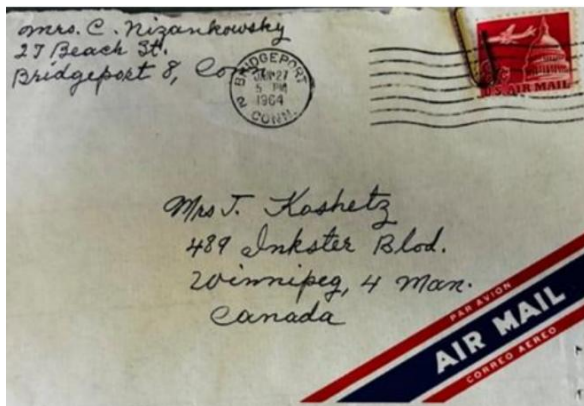 Mrs. C. Nizankowsky
27 Beach St.
Bridgeport 8, Conn.
BRIDGEPORT
JAN 27
5 PM
1964
2 CONN.
8c
U.S. AIR MAIL
Mrs T. Koshetz
489 Inkster Blvd.
Winnipeg, 4 Man.
Canada
PAR AVION
AIR MAIL
CORREO AEREO